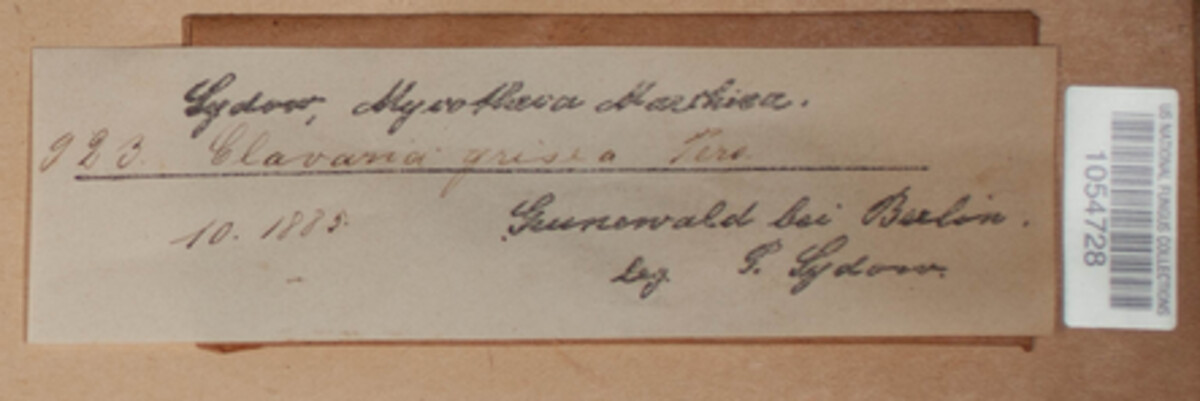 Sydow, Mycotheca Marchica.
923. Clavaria grisea Pers.
10. 1885.
Grunewald bei Berlin.
Leg. P. Sydow.
US NATIONAL FUNGUS COLLECTIONS
1054728